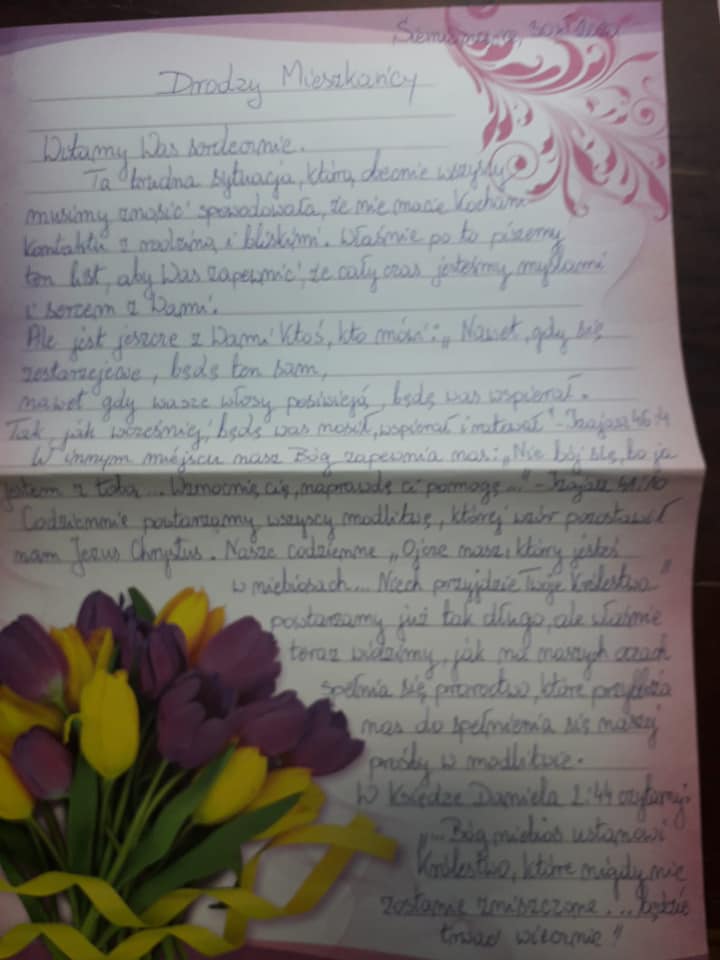 Drodzy Mieszkańcy
Witamy Was serdecznie.
Ta trudna sytuacja, którą obecnie wszyscy
musimy znosić spowodowała, że nie macie Kochani
kontaktu z rodziną i bliskimi. Właśnie po to piszemy
ten list, aby Was zapewnić, że cały czas jesteśmy myślami
i sercem z Wami.
Ale jest jeszcze z Wami Ktoś, kto mówi: „Nawet, gdy się
zestarzejecie, będę ten sam,
nawet gdy wasze włosy posiwieją, będę was wspierał.
Tak, jak wcześniej, będę was nosił, wspierał i ratował" - Izajasz 46:4
W innym miejscu nasz Bóg zapewnia nas: „Nie bój się, bo ja
jestem z tobą... Wzmocnię cię, naprawdę ci pomogę..." - Izajasz 41:10
Codziennie powtarzamy wszyscy modlitwę, której wzór pozostawił
nam Jezus Chrystus. Nasze codzienne „Ojcze nasz, który jesteś
w niebiosach... Niech przyjdzie Twoje Królestwo"
powtarzamy już tak długo, ale właśnie
teraz widzimy, jak na naszych oczach
spełnia się proroctwo, które przybliża
nas do spełnienia się naszej
prośby w modlitwie.
W Księdze Daniela 2:44 czytamy:
„...Bóg niebios ustanowi
Królestwo, które nigdy nie
zostanie zniszczone ... będzie
trwać wiecznie"